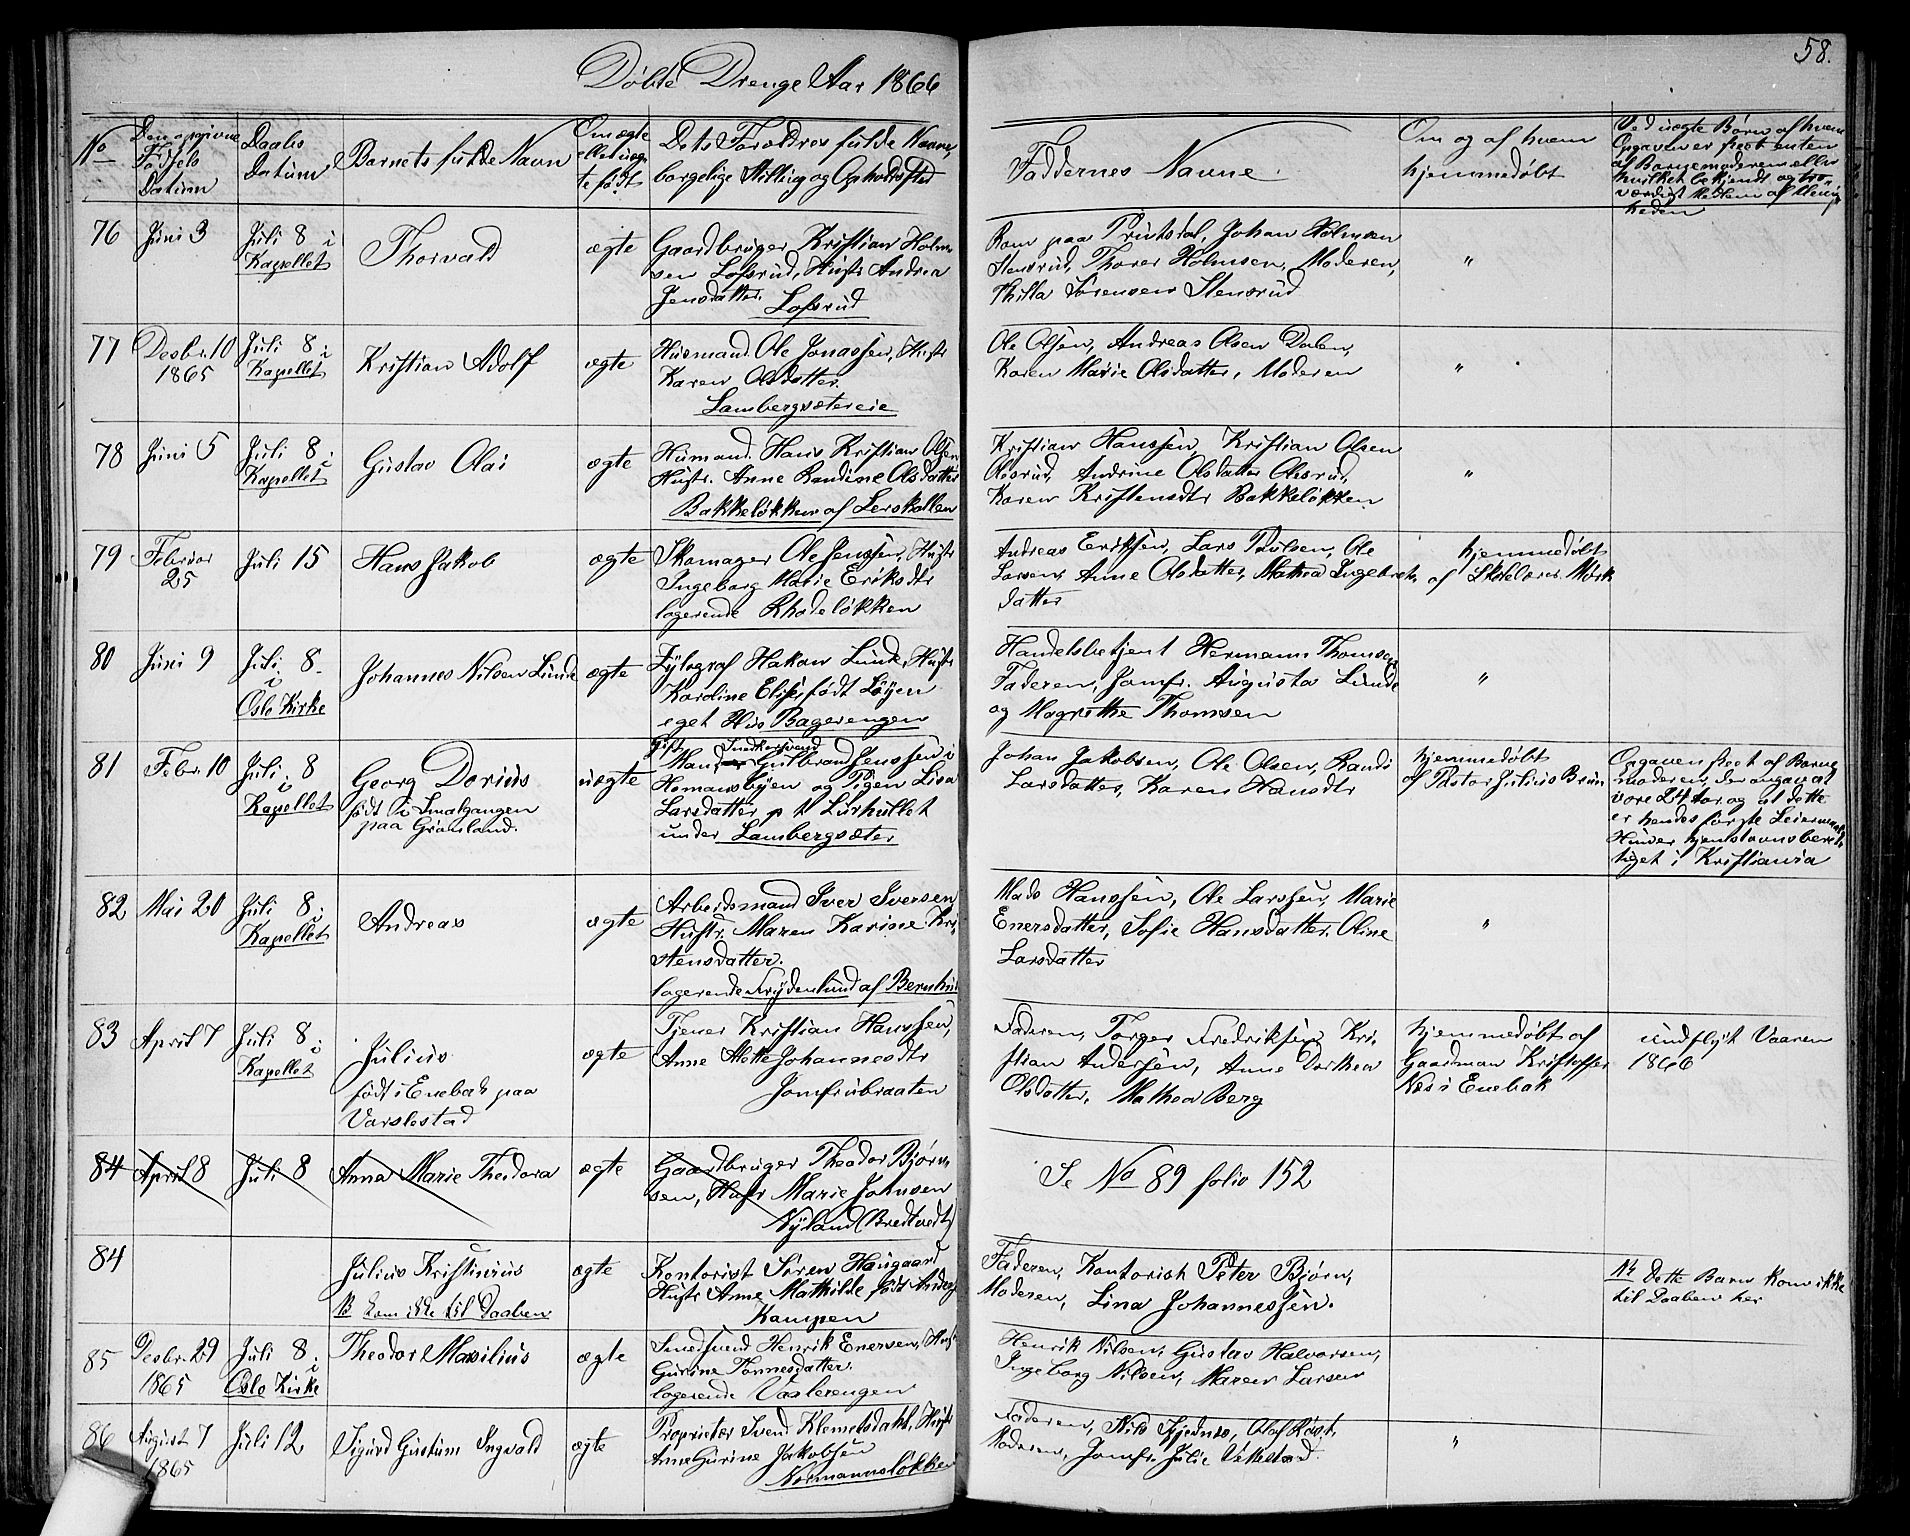 58.
Døbte Drenge Aar 1866
No
Den opgivne
Fødsels
Datum
Daabs
Datum
Barnets fulde Navn
Om ægte
eller uæg-
te født
Dets Forældres fulde Navne,
borgelige Stilling og Opholdssted
Faddernes Navne.
Om og af hvem
hjemmedøbt
Ved uægte Børn af hvem
Opgaven er skeet enten
af Barnemoderen eller
hvilket bekjendt og tro-
værdigt Medlem af Menig-
heden
76
Juni 3
Juli 8 i
Kapellet
Thorvald
ægte
Gaardbruger Kristian Holm-
sen Lofsrud, Hustr Andrea
Jensdatter.
Lofsrud
Johan Holmsen
Stensrud, Thorer Holmsen, Moderen,
Sørensen Stensrud
"
77
Desbr. 10
1865
Juli 8 i
Kapellet
Kristian Adolf
ægte
Husmand Ole Jonassen, Hustr
Karen Olsdatter.
Lambergsætereie
Ole Olsen, Andreas Olsen Dalen,
Karen Marie Olsdatter, Moderen
"
78
Juni 5
Juli 8 i
Kapellet
Gustav Olai
ægte
Husmand. Hans Kristian Olsen
Hustr. Anne Randine Olsdatter
Bakkeløkken af Lerskallen
Kristian Hanssen, Kristian Olsen
Olesrud, Andrine Olsdatter Olesrud,
Karen Kristensdtr Bakkeløkken
"
79
Februar
25
Juli 15
Hans Jakob
ægte
Skomager Ole Jenssen, Hustr
Ingeborg Marie Eriksdtr
logerende Rhodeløkken
Andreas Eriksen, Lars Poulsen, Ole
Larsen, Anne Olsdatter, Mathea Ingebrets-
datter
hjemmedøbt
af Skolelærer Mørk
80
Juni 9
Juli 8
i
Oslo Kirke
Johannes Nilsen Lunde
ægte
Xylograf Hakon Lunde, Hustr
Karoline Elise født Løyen
eget Hus Bagerengen
Handelsbetjent Hermann Thomsen
Faderen, Jomfr. Augusta Lunde
og Magrethe Thomsen
"
81
Febr. 10
Juli 8
i
Kapellet
Georg Dorius
født i Smalgangen
paa Grønland.
uægte
Gift Snedkersvend
Mand Gulbrand Jenssen i
Homansbyen og Pigen Lisa
Larsdatter p t Lurhullet
under Lambergsæter
Johan Jakobsen, Ole Olsen, Randi
Larsdatter, Karen Hansdtr
hjemmedøbt
af Pastor Julius Bruun
Opgaven skeet af Barne-
moderen, der angav at
være 24 Aar og at dette
er hendes første Leiermaal.
Hun er hjemstavnsberet-
tiget i Kristiania
82
Mai 20
Juli 8 i
Kapellet
Andreas
ægte
Arbeidsmand Iver Iversen
Hustr. Maren Karine Kri-
stensdatter.
logerende Frydenlund af
Mads Hanssen, Ole Larssen, Marie
Enersdatter, Sofie Hansdatter. Oline
Larsdatter
"
83
April 7
Juli 8 i
Kapellet
Julius
født i Enebak paa
Varslestad
ægte
Tjener Kristian Hanssen,
Anne Mette Johannesdtr
Jomfrubraaten
Faderen, Torger Fredriksen, Kri-
stian Andersen, Anne Dorthea
Olsdatter, Mathea Berg
hjemmedøbt af
Gaardman Kristoffer
Næs i Enebak
indflyt Vaaren
1866
84
April 8
Juli 8
Anna Marie Theodora
ægte
Gaardbruger Theodor Bjørn-
sen, Hustr Marie Johnsen
Nyland (Bredtvedt)
Se No 89 folio 152
84
Julius Kristinius
NB kom ikke til Daaben
ægte
Kontorist Søren Haugaard
Hustr Anne Mathilde født
Kampen
Faderen, Kontorist Peter Bjørn,
Moderen, Lina Johannessen.
NB Dette Barn kom ikke
til Daaben her
85
Desbr. 29
1865
Juli 8 i
Oslo Kirke
Theodor Maxilius
ægte
Smedsvend Henrik Enersen, Hustr
Gurine Tønnesdatter.
logerende Vaalerengen
Henrik Nilsen, Gustav Halvorsen,
Ingeborg Nilsen, Maren Larsen
86
August 7
1865
Juli 12
Sigurd Gustum Ingvald
ægte
Proprietær Svend Klemetsdahl, Hustr
Anne Gurine Jakobsen
Normannsløkken
Faderen, Nils Olaf
Moderen, Jomfr. Julie
"